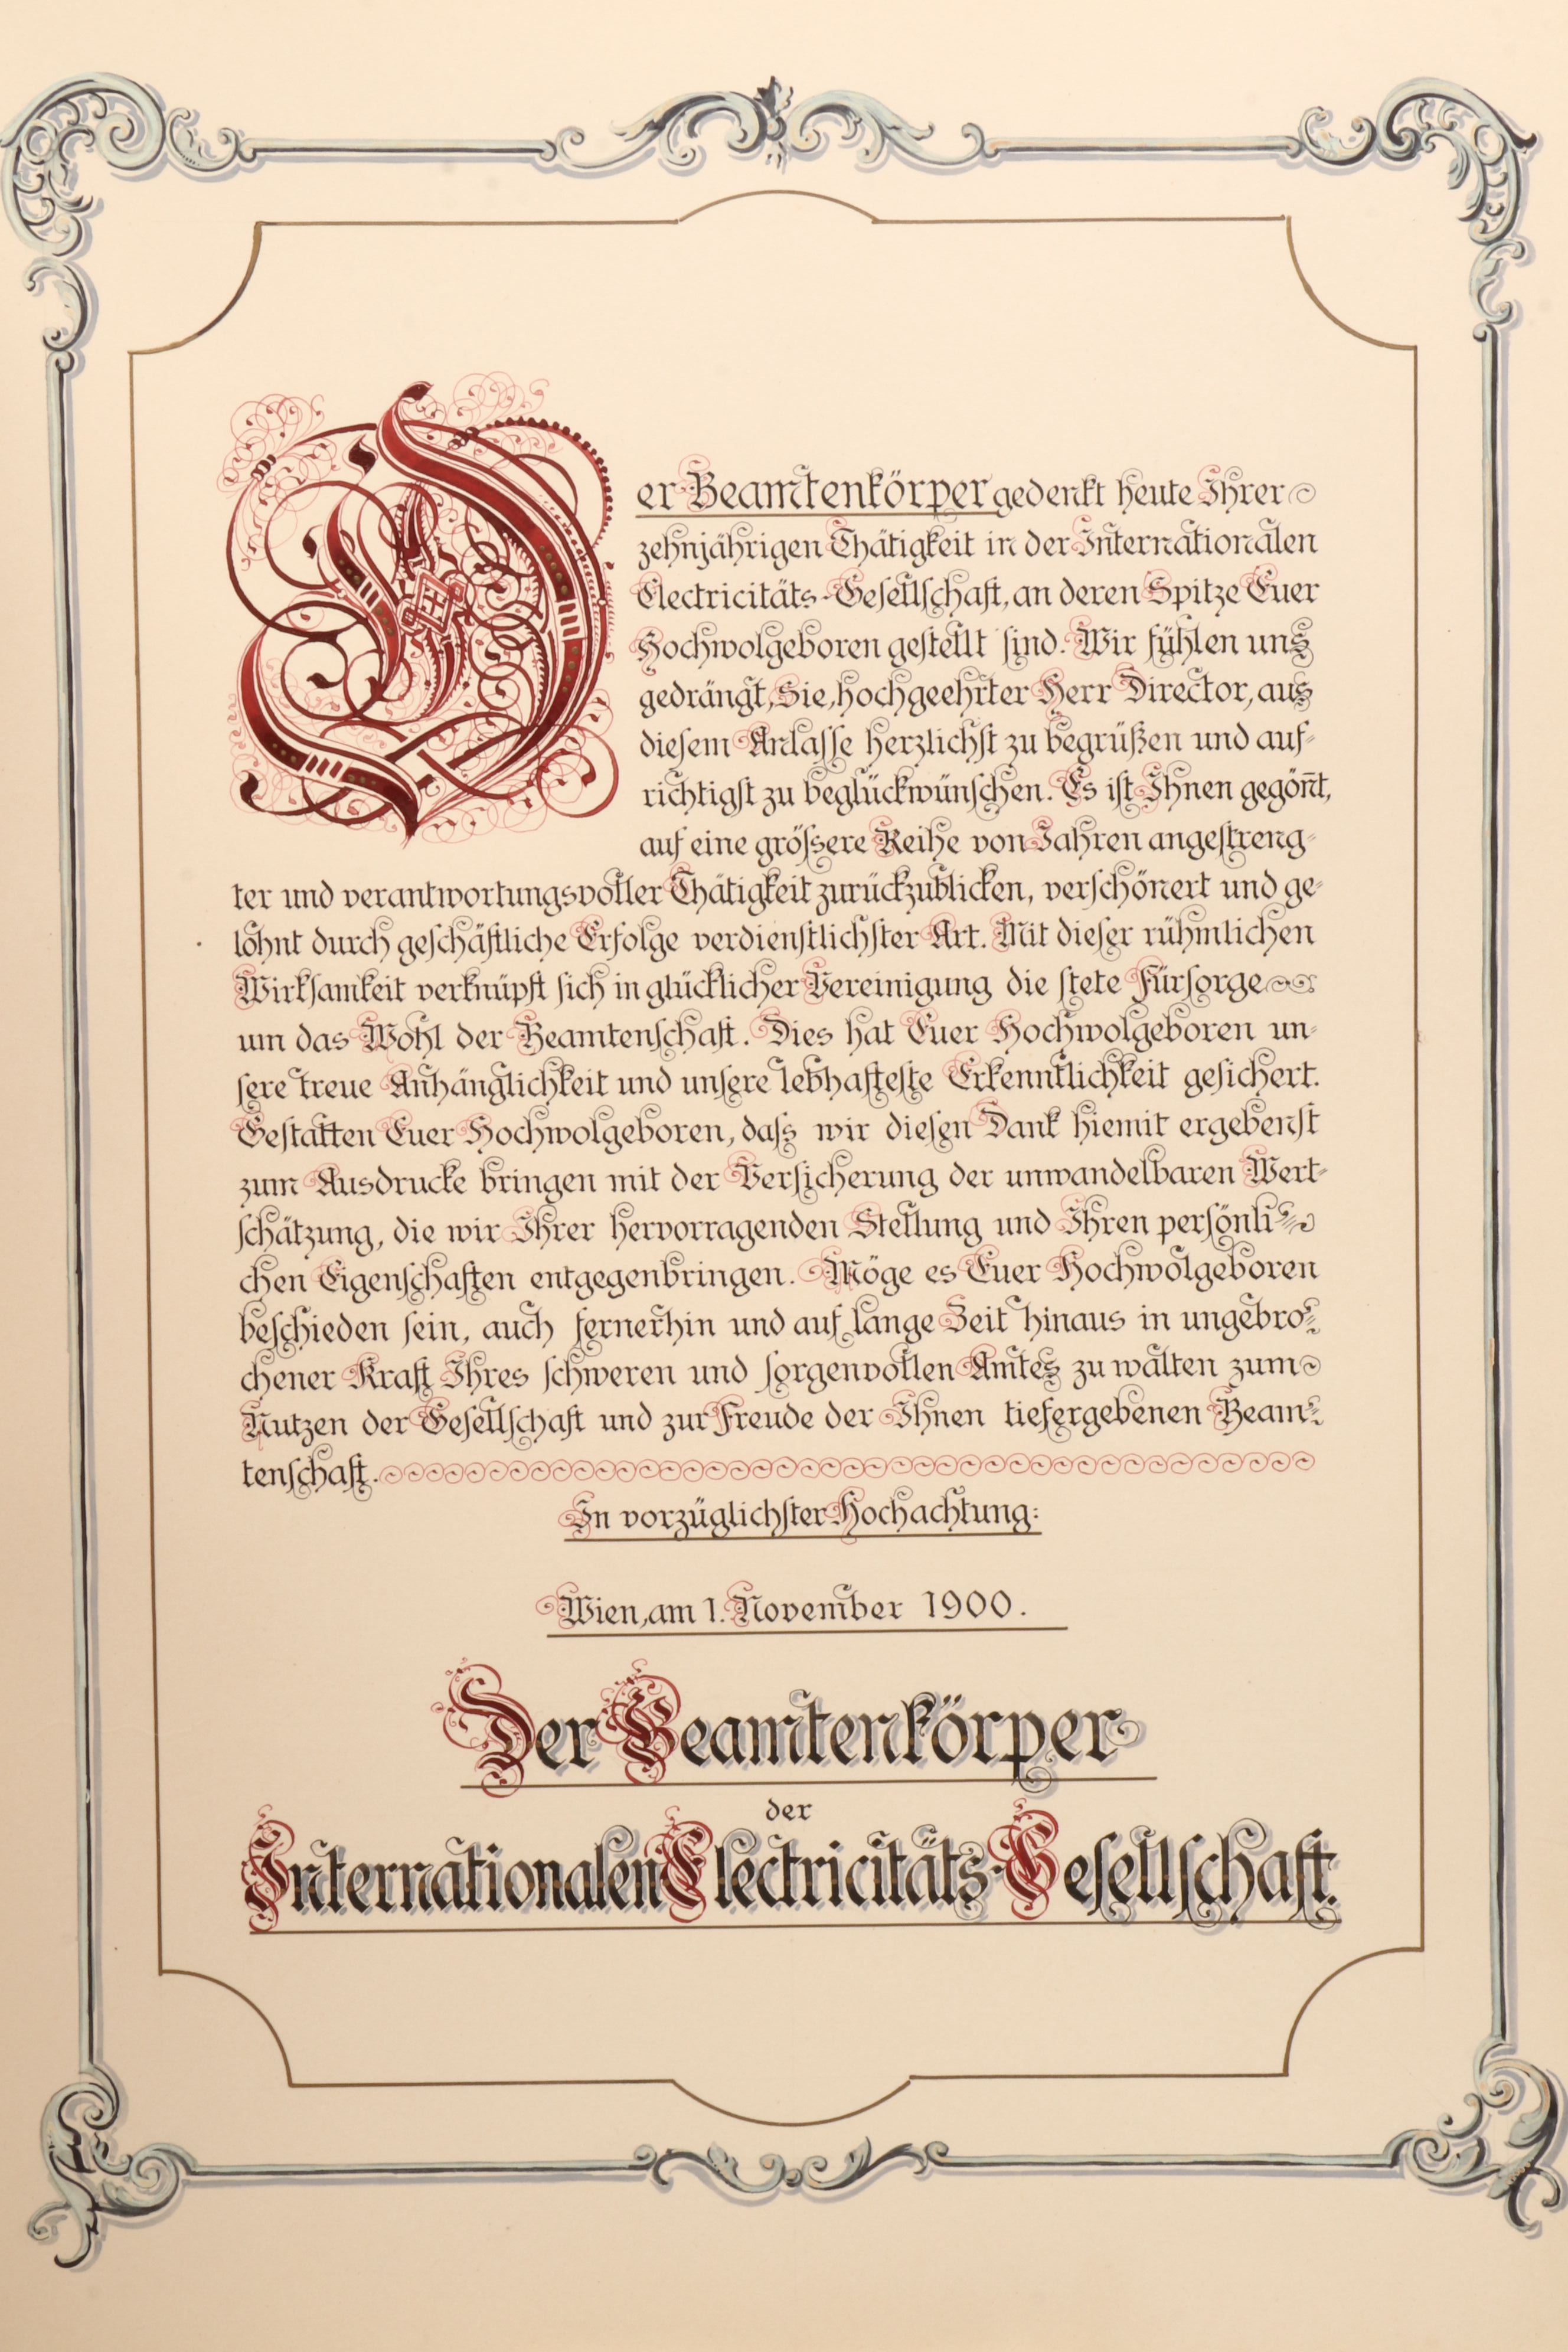 Der Beamtenkörper gedenkt heute Ihrer
zehnjährigen Thätigkeit in der Internationalen
Electricitäts-Gesellschaft, an deren Spitze Euer
Hochwolgeboren gestellt sind. Wir fühlen uns
gedrängt, Sie, hochgeehrter Herr Director, aus
diesem Anlasse herzlichst zu begrüßen und auf-
richtigst zu beglückwünschen. Es ist Ihnen gegön̄t,
auf eine grössere Reihe von Jahren angestreng-
ter und verantwortungsvoller Thätigkeit zurückzublicken, verschönert und ge-
lohnt durch geschäftliche Erfolge verdienstlichster Art. Mit dieser rühmlichen
Wirksamkeit verknüpft sich in glücklicher Vereinigung die stete Fürsorge
um das Wohl der Beamtenschaft. Dies hat Euer Hochwolgeboren un-
sere treue Anhänglichkeit und unsere lebhafteste Erkenntlichkeit gesichert.
Gestatten Euer Hochwolgeboren, dass wir diesen Dank hiemit ergebenst
zum Ausdrucke bringen mit der Versicherung der unwandelbaren Wert-
schätzung, die wir Ihrer hervorragenden Stellung und Ihren persönli-
chen Eigenschaften entgegenbringen. Möge es Euer Hochwolgeboren
beschieden sein, auch fernerhin und auf lange Zeit hinaus in ungebro-
chener Kraft Ihres schweren und sorgenvollen Amtes zu walten zum
Nutzen der Gesellschaft und zur Freude der Ihnen tiefergebenen Beam-
tenschaft.
In vorzüglichster Hochachtung:
Wien, am 1. November 1900.
Der Beamtenkörper
der
Internationalen Electricitäts-Gesellschaft.